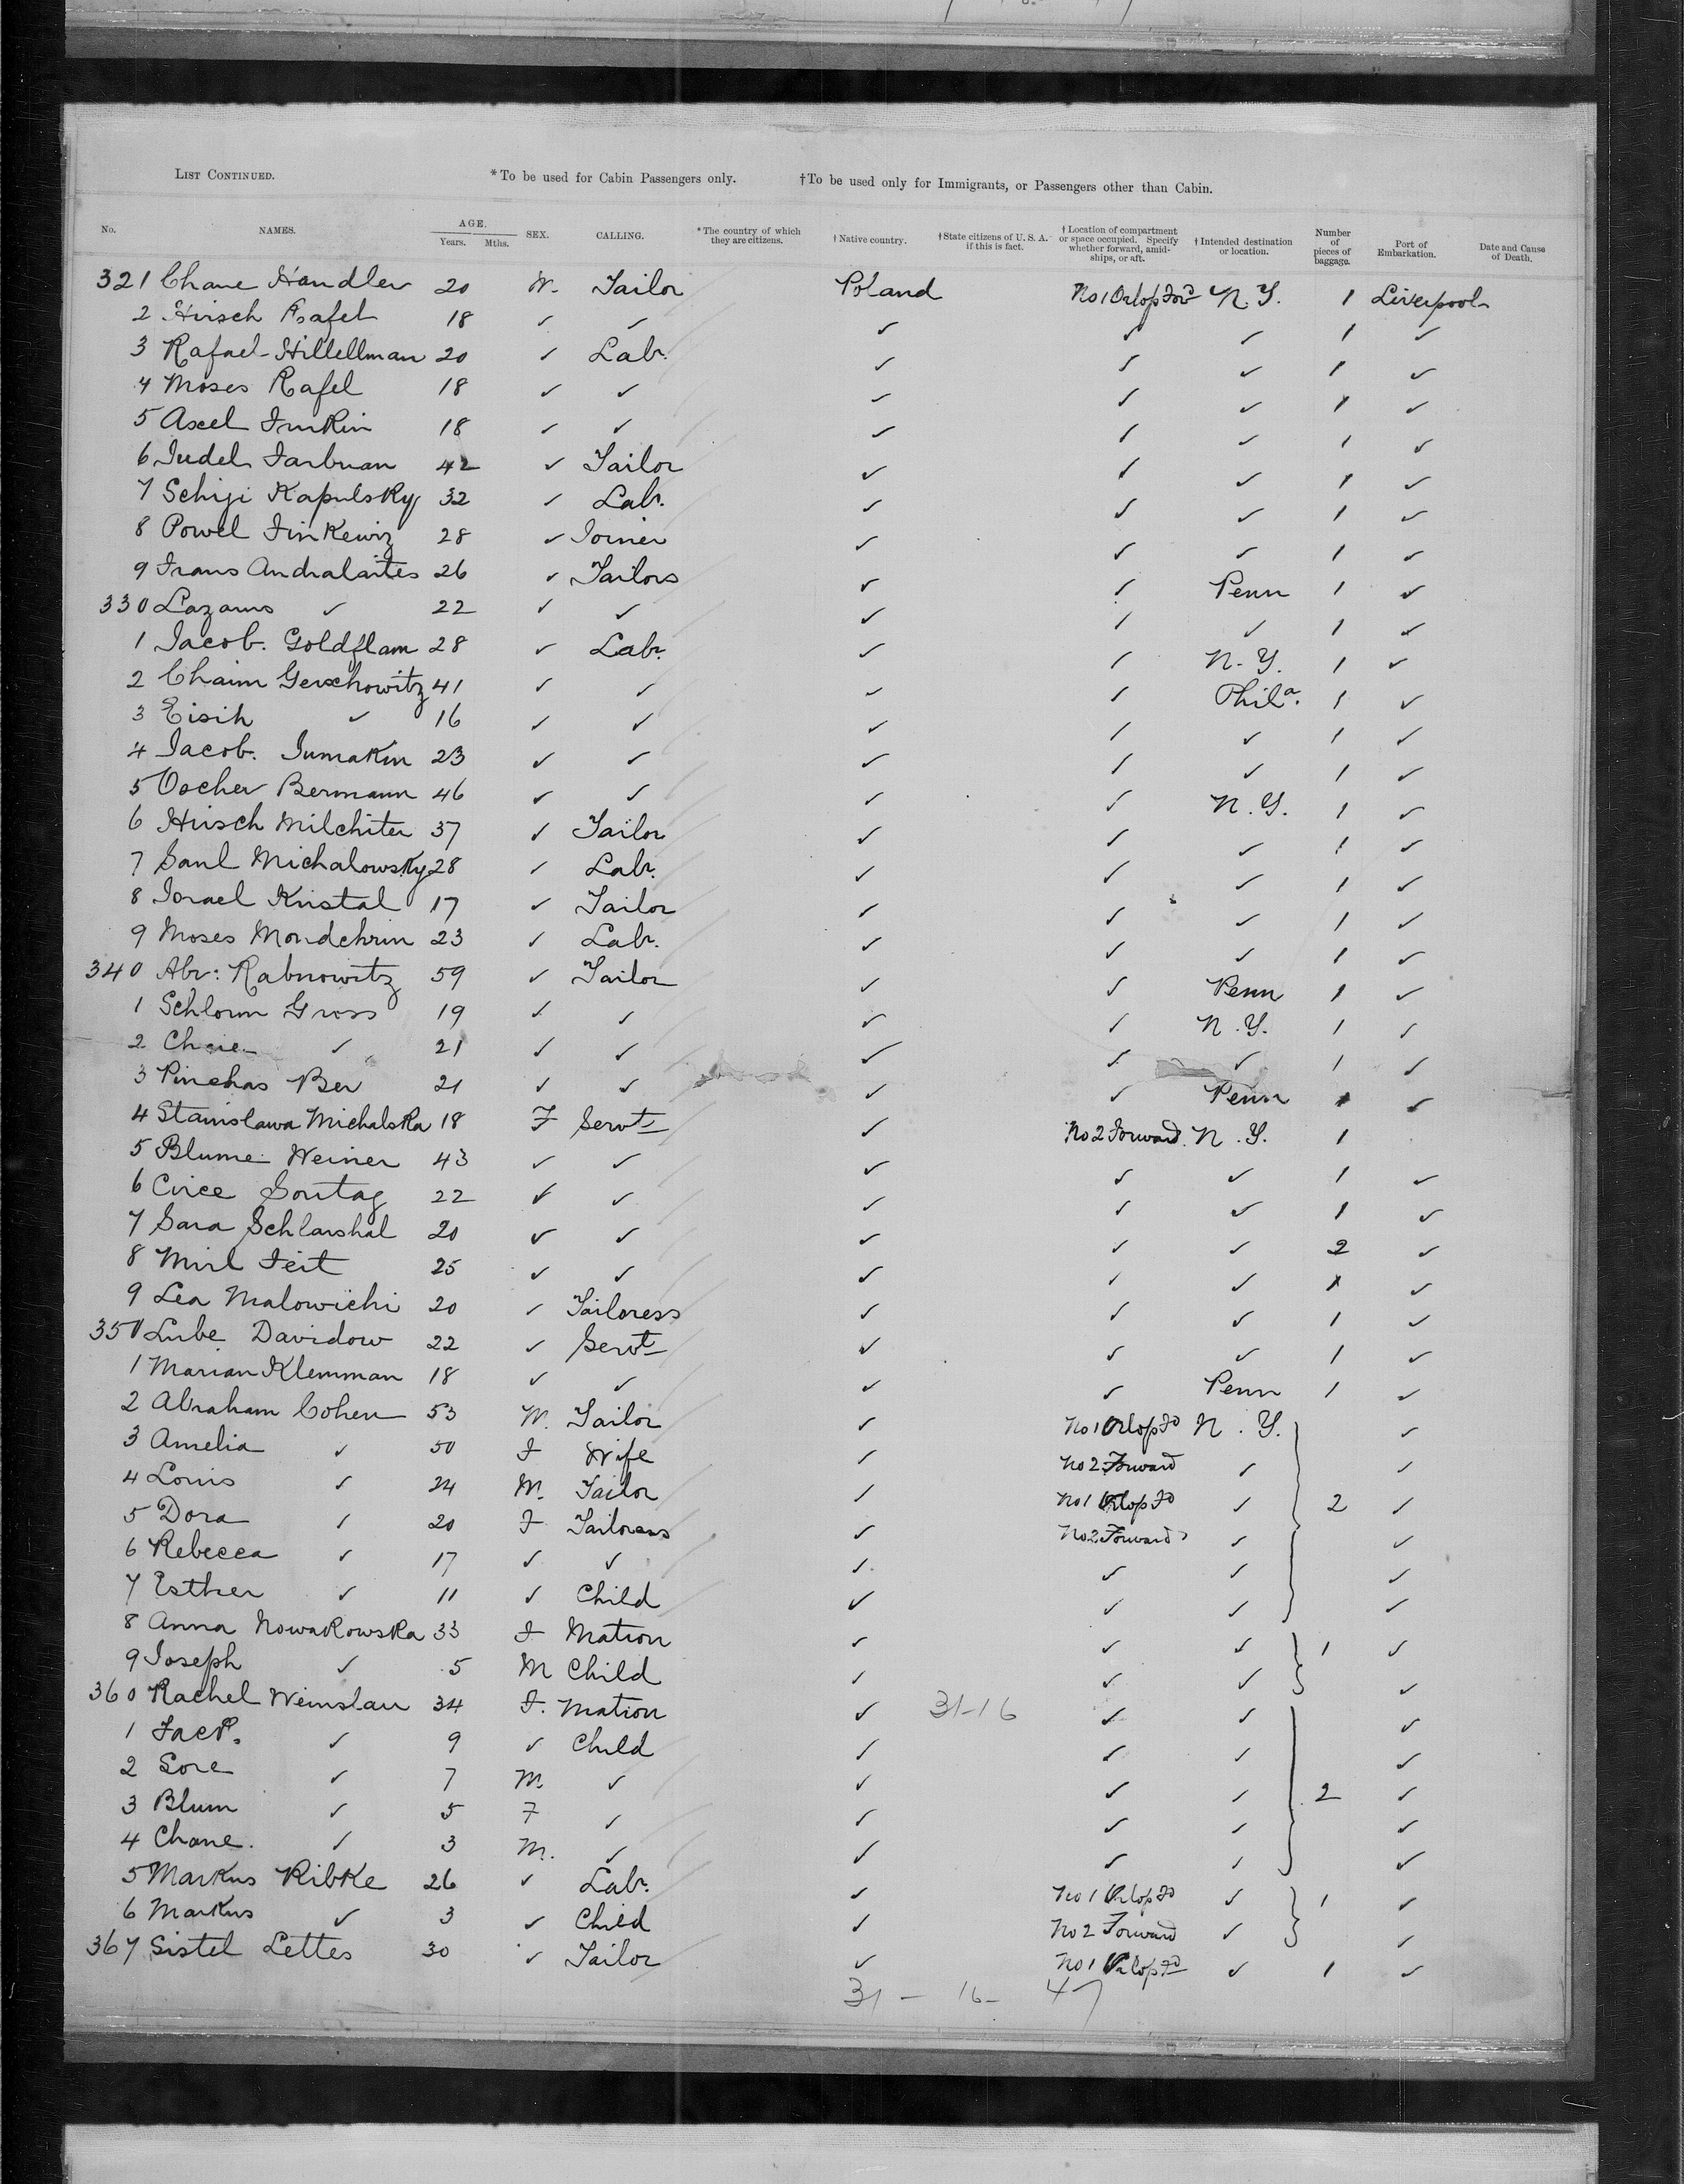 LIST CONTINUED. *To be used for Cabin Passengers only. †To be used only for Immigrants, or Passengers other than Cabin.
No. NAMES. AGE. Years. Mths. SEX. CALLING. *The country of which they are citizens. †Native country. †State citizens of U. S. A. if this is fact. †Location of compartment or space occupied. Specify whether forward, amidships, or aft. †Intended destination or location. Number of pieces of baggage. Port of Embarkation. Date and Cause of Death.
321 Chane Handler 20 M. Tailor Poland No 1 Orlop For'd N.Y. 1 Liverpool
2 Hirsch Rafel 18 ✓ ✓ ✓ ✓ ✓ 1 ✓
3 Rafael Hillellman 20 ✓ Labr. ✓ ✓ ✓ 1 ✓
4 Moses Rafel 18 ✓ ✓ ✓ ✓ ✓ 1 ✓
5 Axel 18 ✓ ✓ ✓ ✓ ✓ 1 ✓
6 Judel Farbman 42 ✓ Tailor ✓ ✓ ✓ 1 ✓
7 Kapulsky 32 ✓ Labr. ✓ ✓ ✓ 1 ✓
8 Powel Finkewiz 28 ✓ Joiner ✓ ✓ ✓ 1 ✓
9 Frans Andralaites 26 ✓ Tailors ✓ ✓ Penn 1 ✓
330 Lazarus ✓ 22 ✓ ✓ ✓ ✓ ✓ 1 ✓
1 Jacob. Goldflam 28 ✓ Labr. ✓ ✓ N.Y. 1 ✓
2 Chaim Gerschowitz 41 ✓ ✓ ✓ ✓ Phila. 1 ✓
3 Eisik ✓ 16 ✓ ✓ ✓ ✓ ✓ 1 ✓
4 Jacob. Jumakin 23 ✓ ✓ ✓ ✓ ✓ 1 ✓
5 Oscher Bermann 46 ✓ ✓ ✓ ✓ N.Y. 1 ✓
6 Hirsch Milchiter 37 ✓ Tailor ✓ ✓ ✓ 1 ✓
7 Saul Michalowsky 28 ✓ Labr. ✓ ✓ ✓ 1 ✓
8 Israel Kristal 17 ✓ Tailor ✓ ✓ ✓ 1 ✓
9 Moses 23 ✓ Labr. ✓ ✓ ✓ 1 ✓
340 Abr: Rabnowitz 59 ✓ Tailor ✓ ✓ Penn 1 ✓
1 Schlom Gross 19 ✓ ✓ ✓ ✓ N.Y. 1 ✓
2 Chaie ✓ 21 ✓ ✓ ✓ ✓ ✓ 1 ✓
3 Pinchas Ber 21 ✓ ✓ ✓ ✓ Penn 1 ✓
4 Stanislawa Michalska 18 F Servt ✓ No 2 Forward. N.Y. 1
5 Blume Weiner 43 ✓ ✓ ✓ ✓ ✓ 1 ✓
6 Sontag 22 ✓ ✓ ✓ ✓ ✓ 1 ✓
7 Sara Schlarshal 20 ✓ ✓ ✓ ✓ ✓ 2 ✓
8 Mirl Feit 25 ✓ ✓ ✓ ✓ ✓ 1 ✓
9 Lea Malowichi 20 ✓ Tailoress ✓ ✓ ✓ 1 ✓
350 Lube Davidow 22 ✓ Servt ✓ ✓ ✓ 1 ✓
1 Marian Klemman 18 ✓ ✓ ✓ ✓ Penn 1 ✓
2 Abraham Cohen 53 M. Tailor ✓ No 1 Orlop Fd N.Y. ✓
3 Amelia ✓ 50 F Wife ✓ No 2 Forward ✓ ✓
4 Louis ✓ 24 M. Tailor ✓ No 1 Orlop Fd ✓ 2 ✓
5 Dora ✓ 20 F Tailoress ✓ No 2 Forward ✓ ✓
6 Rebecca ✓ 17 ✓ ✓ ✓ ✓ ✓ ✓
7 Esther ✓ 11 ✓ Child ✓ ✓ ✓ ✓
8 Anna Nowakowska 33 F Matron ✓ ✓ ✓ 1 ✓
9 Joseph ✓ 5 M Child ✓ ✓ ✓ ✓
360 Rachel Weinslau 34 F. Matron ✓ 31-16 ✓ ✓ ✓
1 ✓ 9 ✓ Child ✓ ✓ ✓ ✓
2 Sore ✓ 7 M. ✓ ✓ ✓ ✓ 2 ✓
3 Blum ✓ 5 F ✓ ✓ ✓ ✓ ✓
4 Chane. ✓ 3 M. ✓ ✓ ✓ ✓ ✓
5 Markus Ribke 26 ✓ Labr. ✓ No 1 Orlop Fd ✓ 1 ✓
6 Markus ✓ 3 ✓ Child ✓ No 2 Forward ✓ ✓
367 Sistel Lettes 30 ✓ Tailor ✓ No 1 Orlop Fd ✓ 1 ✓
31 - 16 - 47